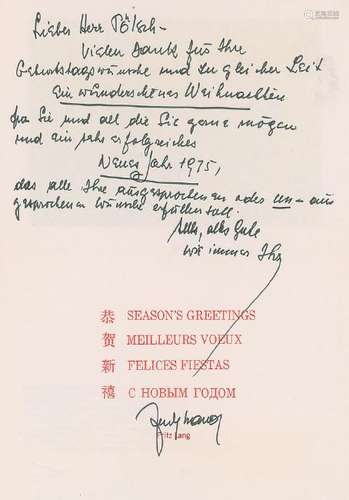 Lieber Herr Pölsch-
Vielen Dank für Ihre
Geburtstagswünsche und zu gleicher Zeit
Ein wunderschönes Weihnachten
für Sie und all die Sie gerne mögen
und ein sehr erfolgreiches
Neues Jahr 1975,
das alle Ihre ausgesprochenen oder un-aus
gesprochenen Wünsche erfüllen soll.
Alles, alles Gute
wie immer Ihr
恭 SEASON'S GREETINGS
賀 MEILLEURS VOEUX
新 FELICES FIESTAS
禧 С НОВЫМ ГОДОМ
Fritz Lang